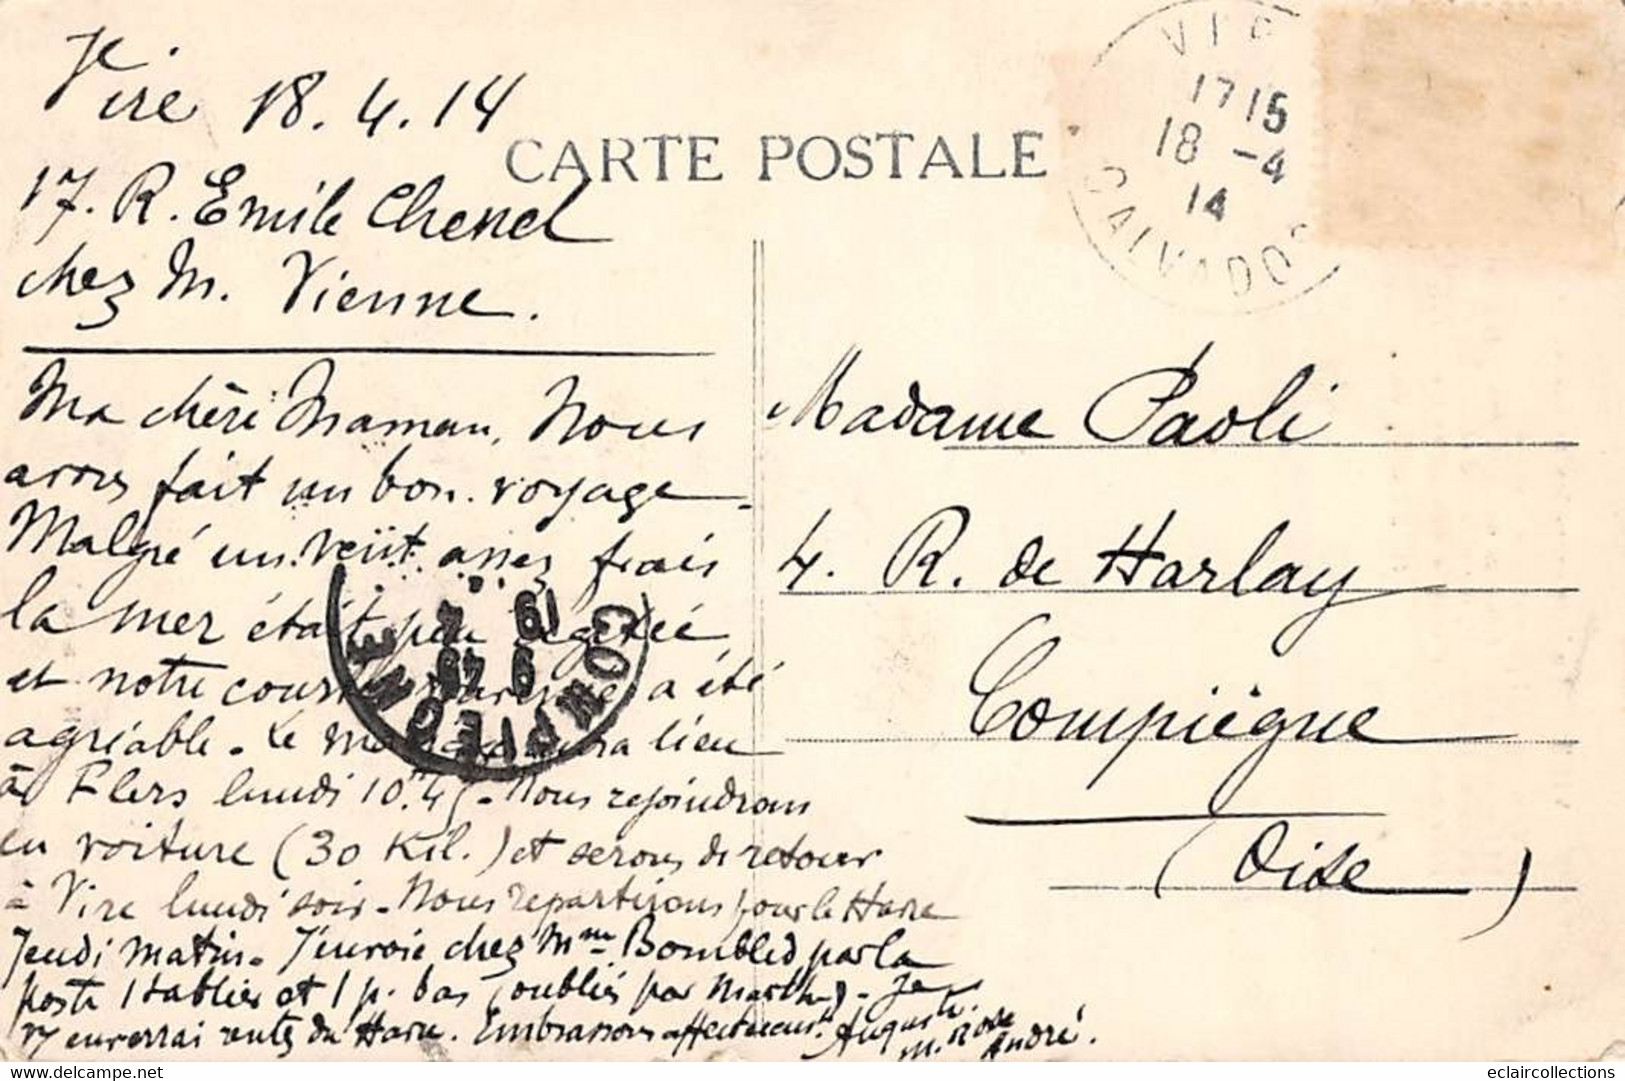 Vire 18.4.14
17. R. Emile Chenel
chez M. Vienne.
CARTE POSTALE
17 15
18 -4
14
CALVADOS
Ma chère Maman, Nous
avons fait un bon voyage
Malgré un vent assez frais
la mer était peu agitée
et notre course a été
agréable. Le lieu
à Flers lundi 10h45. Nous rejoindrons
en voiture (30 Kil.) et serons de retour
à Vire lundi soir. Nous repartirons pour le Havre
Jeudi matin. J'envoie chez Mme Bombled par la
poste 1 tablier et 1 p. bas (oubliés par Marthe). Je
vs enverrai du Havre. Embrassons affectueusemt. Auguste
M. Rose
André.
COMPIEGNE
19
Madame Paoli
4. R. de Harlay
Compiègne
(Oise)
eclaircollections / delcampe.net